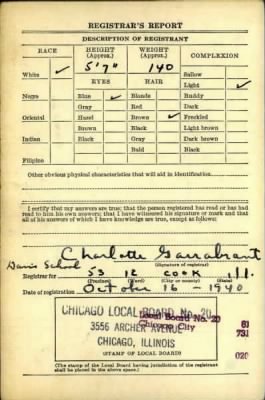 REGISTRAR'S REPORT
DESCRIPTION OF REGISTRANT
RACE HEIGHT (Approx.) WEIGHT (Approx.) COMPLEXION
White ✓ 5' 7" 140 Sallow
EYES HAIR Light ✓
Negro Blue ✓ Blonde Ruddy
Gray Red Dark
Oriental Hazel Brown ✓ Freckled
Brown Black Light brown
Indian Black Gray Dark brown
Bald Black
Filipino
Other obvious physical characteristics that will aid in identification
I certify that my answers are true; that the person registered has read or has had
read to him his own answers; that I have witnessed his signature or mark and that
all of his answers of which I have knowledge are true, except as follows:
Charlotte Garrabrant
Davis School (Signature of registrar)
Registrar for 53 12 COOK Ill.
(Precinct) (Ward) (City or county) (State)
Date of registration October 16 - 1940
CHICAGO LOCAL BOARD No. 20
Local Board No. 20
3556 ARCHER AVENUE
Chicago City
61
731
CHICAGO, ILLINOIS
(STAMP OF LOCAL BOARD)
020
(The stamp of the Local Board having jurisdiction of the registrant
shall be placed in the above space.)